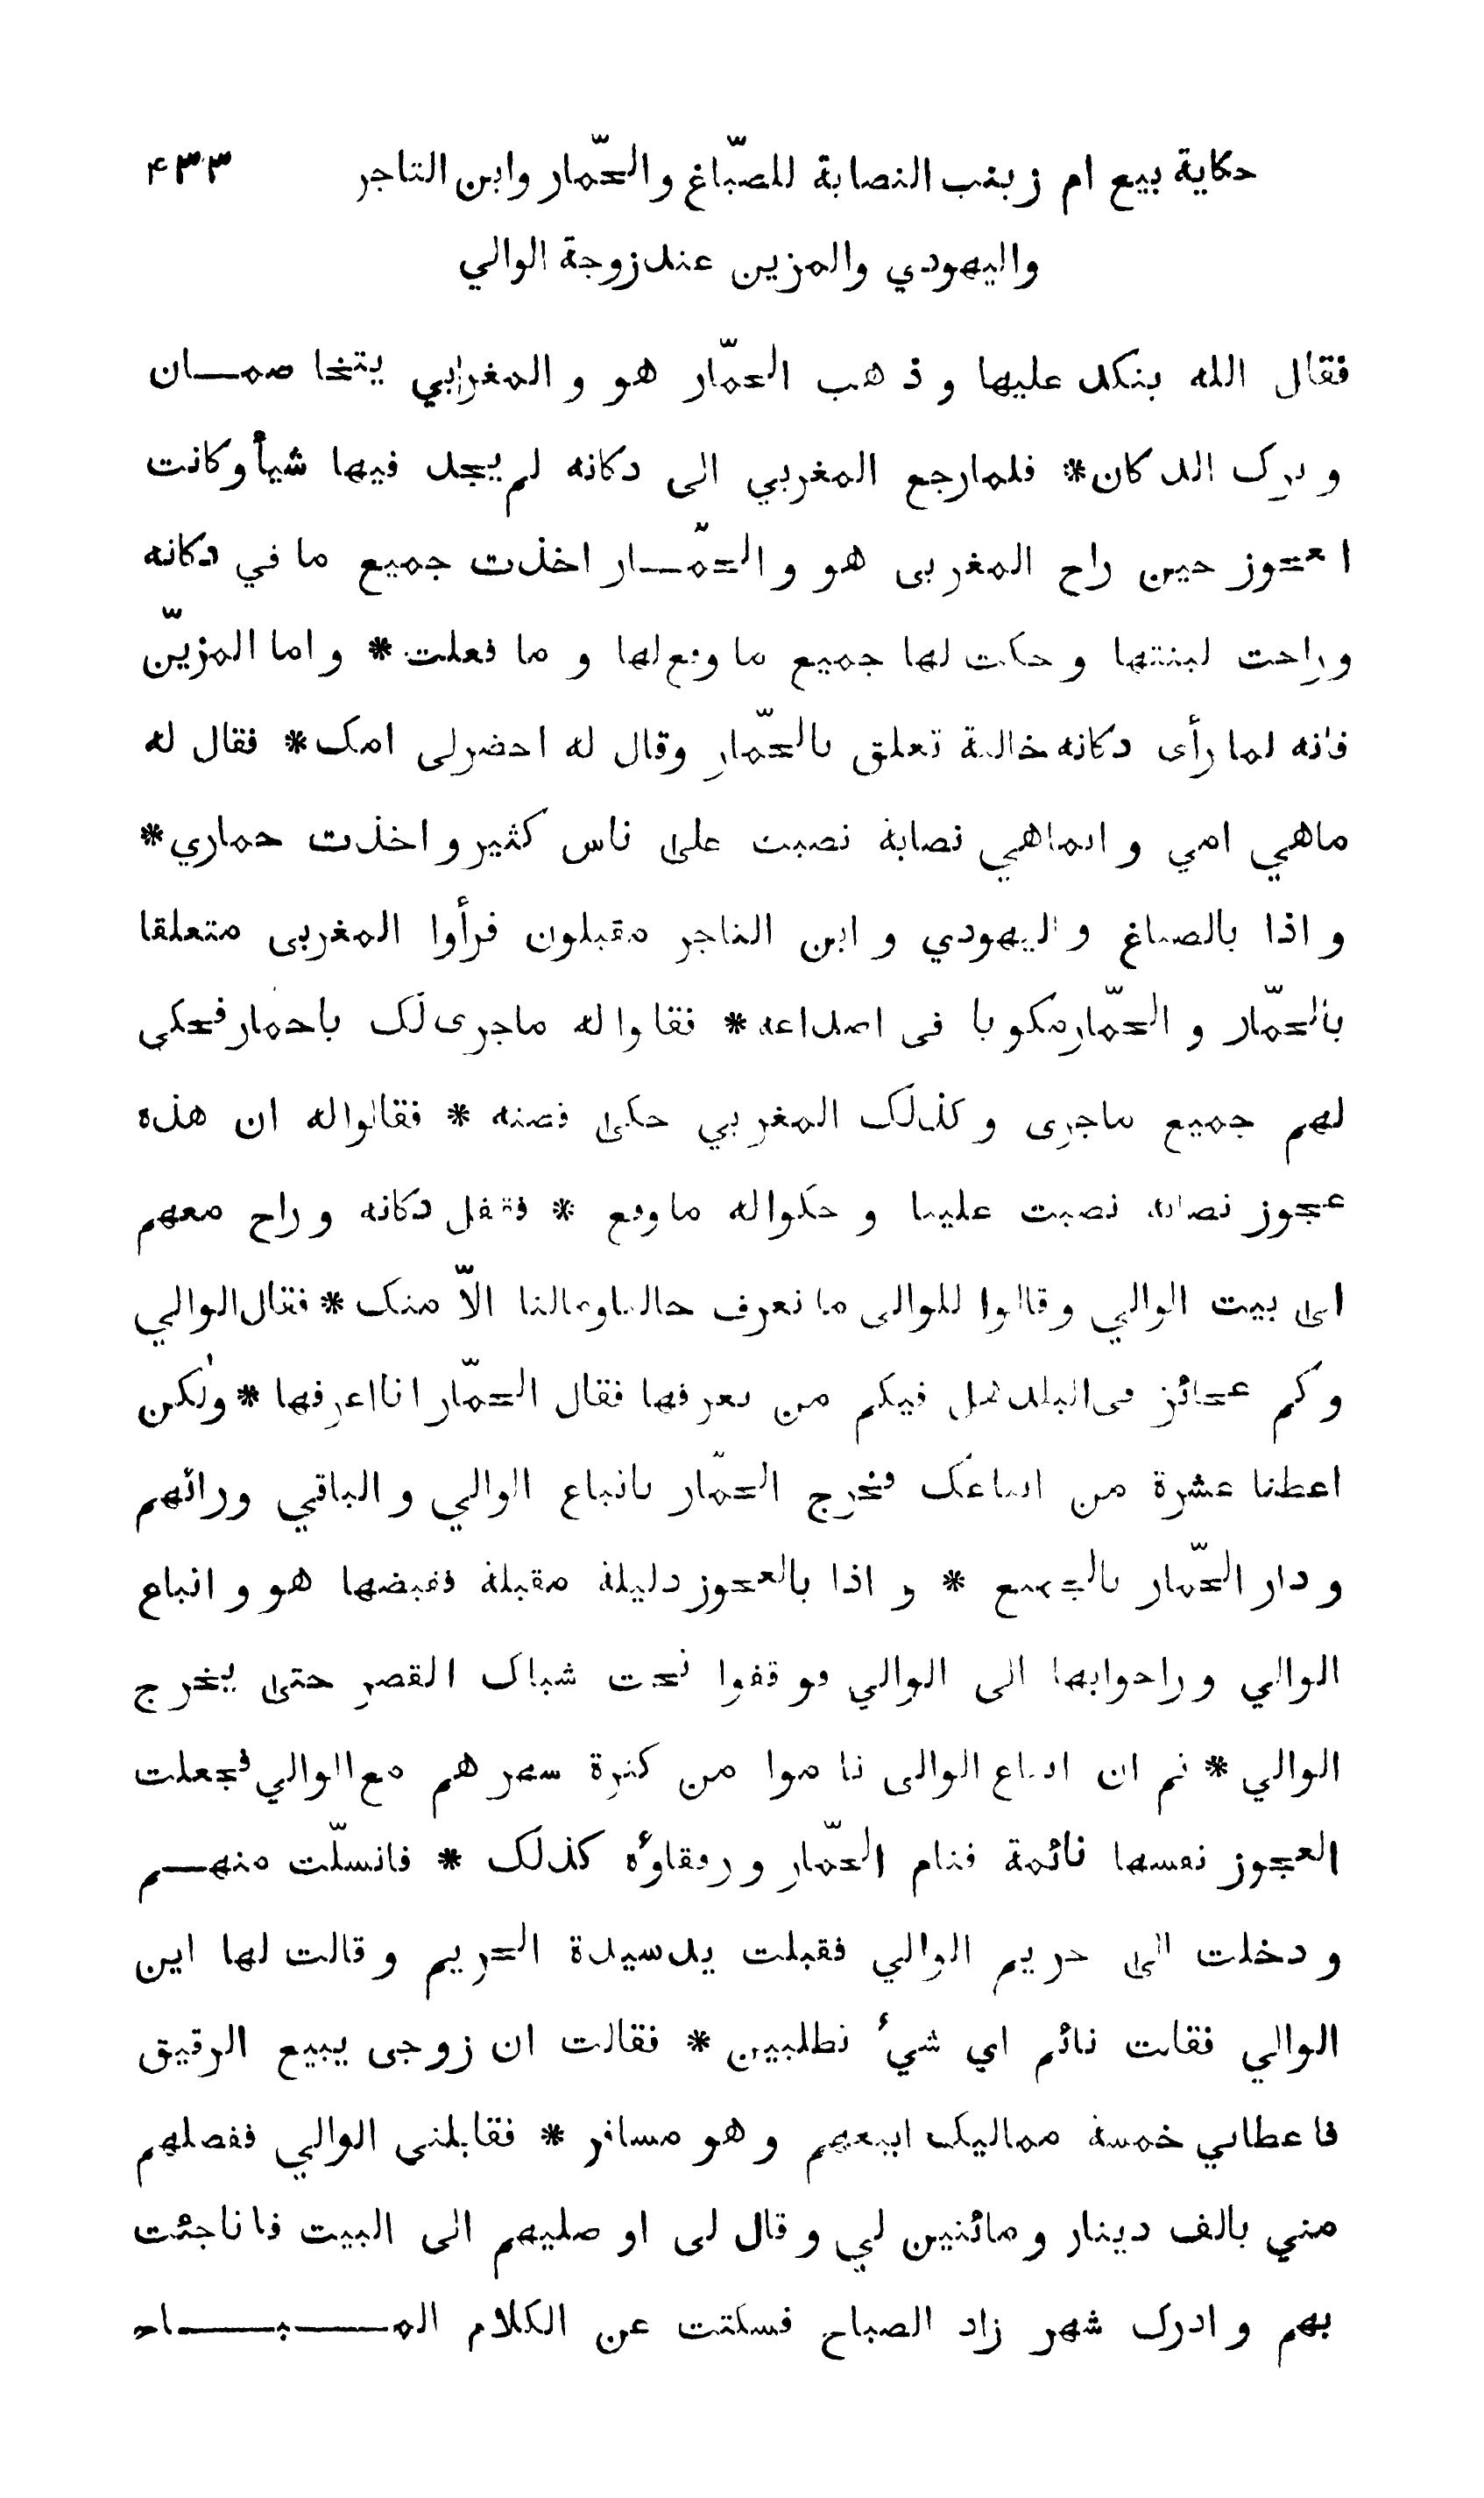 حكاية بيع ام زينب النصابة للصبّاغ والحّمار وابن التاجر ۴۳۳
واليهودي والمزين عند زوجة الوالي
فقال الله ينكد عليها و ذهب الحمّار هو و المغرابي يتخا صمــان
و ترك الدكان * فلمارجع المغربي الى دكانه لم يجد فيها شيأ وكانت
العجوز حين راح المغربى هو و الحمّــار اخذت جميع ما في دكانه
وراحت لبنتها و حكت لها جميع ما وقع لها و ما فعلت * و اما المزيّن
فانه لما رأى دكانه خالية تعلق بالحمّار وقال له احضرلى امك * فقال له
ماهي امي و انماهي نصابة نصبت على ناس كثير و اخذت حماري *
و اذا بالصباغ و اليهودي و ابن التاجر مقبلون فرأوا المغربى متعلقا
بالحمّار و الحمّارمكويا فى اصداغه * فقالواله ماجرى لك ياحمار فحكى
لهم جميع ماجرى و كذلك المغربي حكى قصته * فقالواله ان هذه
عجوز نصابة نصبت علينا و حكواله ماوقع * فقفل دكانه و راح معهم
الى بيت الوالي و قالوا للوالى ما نعرف حالنا ومالنا الاّ منك * فقال الوالي
وكم عجائز فى البلد هل فيكم من يعرفها فقال الحمّار انااعرفها * ولكن
اعطنا عشرة من اتباعك فخرج الحمّار باتباع الوالي و الباقي ورائهم
و دار الحمّار بالجميع * و اذا بالعجوز دليلة مقبلة فقبضها هو و اتباع
الوالي و راحوابها الى الوالي فوقفوا تحت شباك القصر حتى يخرج
الوالي * ثم ان اتباع الوالى نا موا من كثرة سهر هم مع الوالي فجعلت
العجوز نفسها نائمة فنام الحمّار و رفقاؤه كذلك * فانسلّت منهــم
و دخلت الى حريم الوالي فقبلت يد سيدة الحريم و قالت لها اين
الوالي فقالت نائم اي شيء تطلبين * فقالت ان زوجى يبيع الرقيق
فاعطاني خمسة مماليك ابيعهم و هو مسافر * فقابلنى الوالي ففصلهم
مني بالف دينار و مائتين لي و قال لى او صليهم الى البيت فاناجئت
بهم و ادرك شهر زاد الصباح فسكتت عن الكلام المــــبــــاح